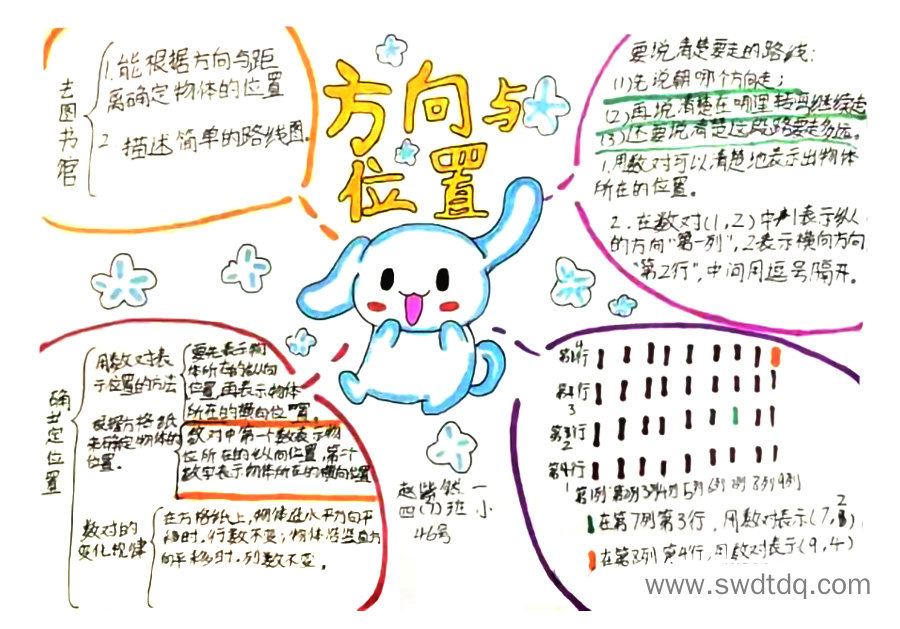 方向与
位置
去图书馆
1. 能根据方向与距
离确定物体的位置
2 描述简单的路线图.
要说清楚要走的路线:
(1)先说朝哪个方向走;
(2)再说清楚在哪里拐弯继续走
(3)还要说清楚这段路要走多远。
1.用数对可以清楚地表示出物体
所在的位置。
2.在数对(1,2)中,1表示纵
的方向“第一列”,2表示横向方向
“第2行”,中间用逗号隔开。
确定位置
用数对表
示位置的方法
要先表示物
体所在的纵向
位置,再表示物体
所在的横向位置。
根据方格纸
来确定物体的
位置。
数对中第一个数表示物
位所在的纵向位置,第二个
数字表示物体所在的横向位置
数对的
变化规律
在方格纸上,物体沿水平方向平
移时,行数不变;物体沿竖直方向
的平移时,列数不变。
一小
四(7)班
46号
4
行
行
3
行
2
第4行
1
第1列 第2列 3列 4列 5列 6列 7列 8列 9列
在第7列第3行,用数对表示(7,
2
在第 列第4行,用数对表示(9,4)
www.swdtdq.com